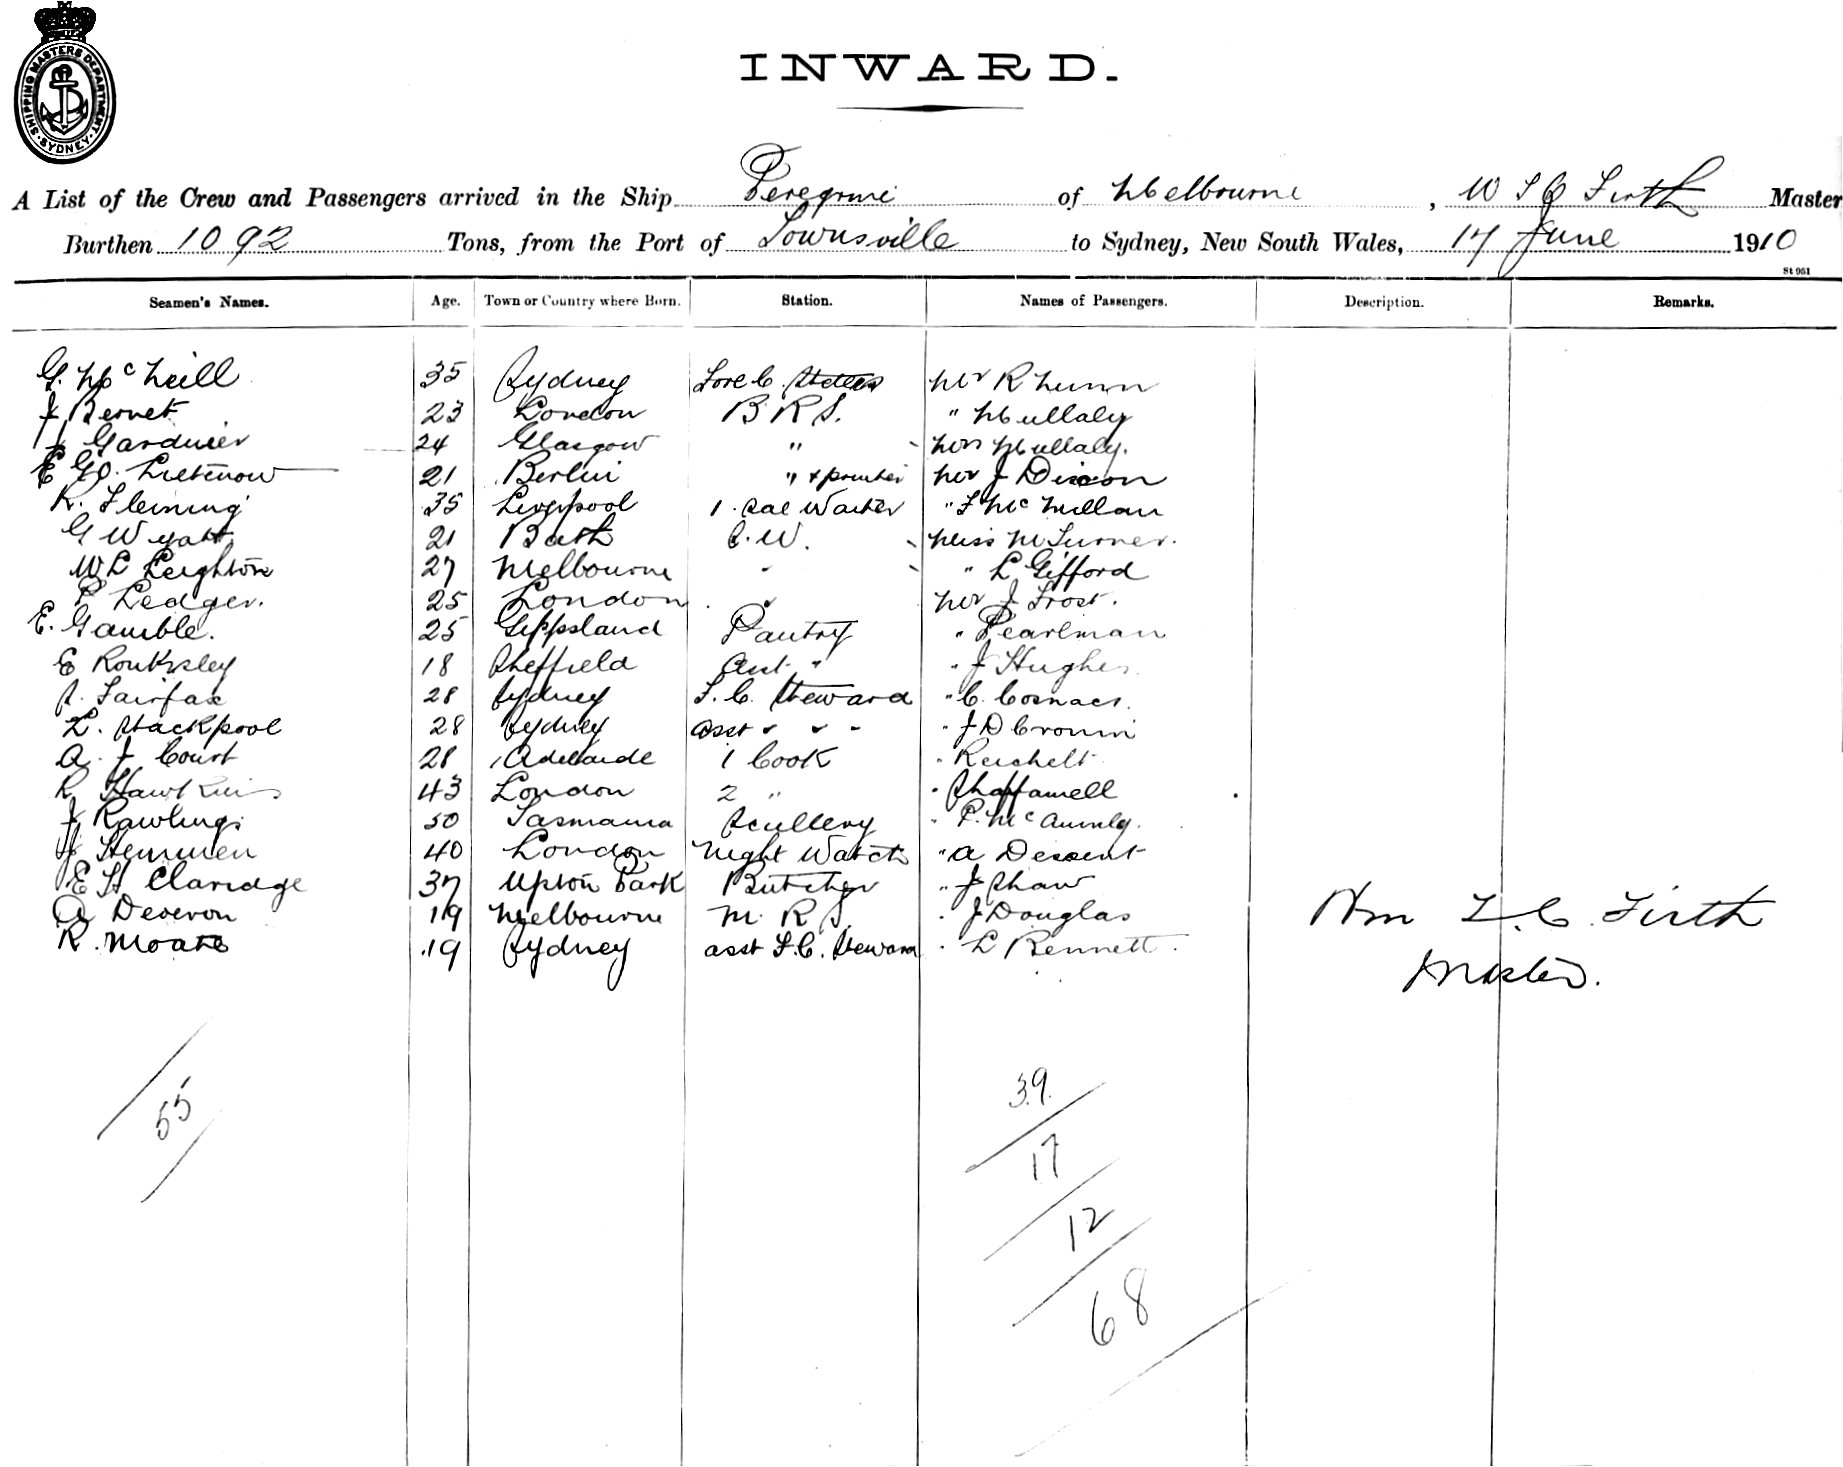 SHIPPING MASTERS DEPARTMENT · SYDNEY ·
INWARD.
A List of the Crew and Passengers arrived in the Ship Peregrine of Melbourne, W T C Firth Master
Burthen 1092 Tons, from the Port of Townsville to Sydney, New South Wales, 17 June 1910
St 951
Seamen's Names. Age. Town or Country where Born. Station. Names of Passengers. Description. Remarks.
G. McNeill 35 Sydney Fore C. Mr R
J Bernet 23 London B R S. " Mullaly
J Gardiner 24 Glasgow " Mrs Mullaly.
E 21 Berlin " & printer Mr J Dixon
R. Fleming 35 Liverpool 1. Sal Waiter " F McMillan
G Wyatt 21 Bath S. W. Miss M Turner.
W L Leighton 27 Melbourne " " L Gifford
P Ledger. 25 London " Mr J Frost.
E. Gamble. 25 Gippsland Pantry " Pearlman
E Rouksley 18 Sheffield Asst " " J Hughes
S. Fairfax 28 Sydney F. C. Steward " C.
L. Stackpool 28 Sydney Asst " " " " J D Cronin
A. J Court 28 Adelaide 1 Cook " Reichelt
R Hawkins 43 London 2 " "
J Rawlings 50 Tasmania Scullery " P. Mc
J Hemmen 40 London Night Watch " A Dessent
E H Claridge 37 Upton Park Butcher " J Shaw
A Deveron 19 Melbourne M. R S. " J Douglas
R. Moate 19 Sydney asst F. C. Steward " L Bennett
Wm T. C. Firth
Master.
55
39
17
12
68